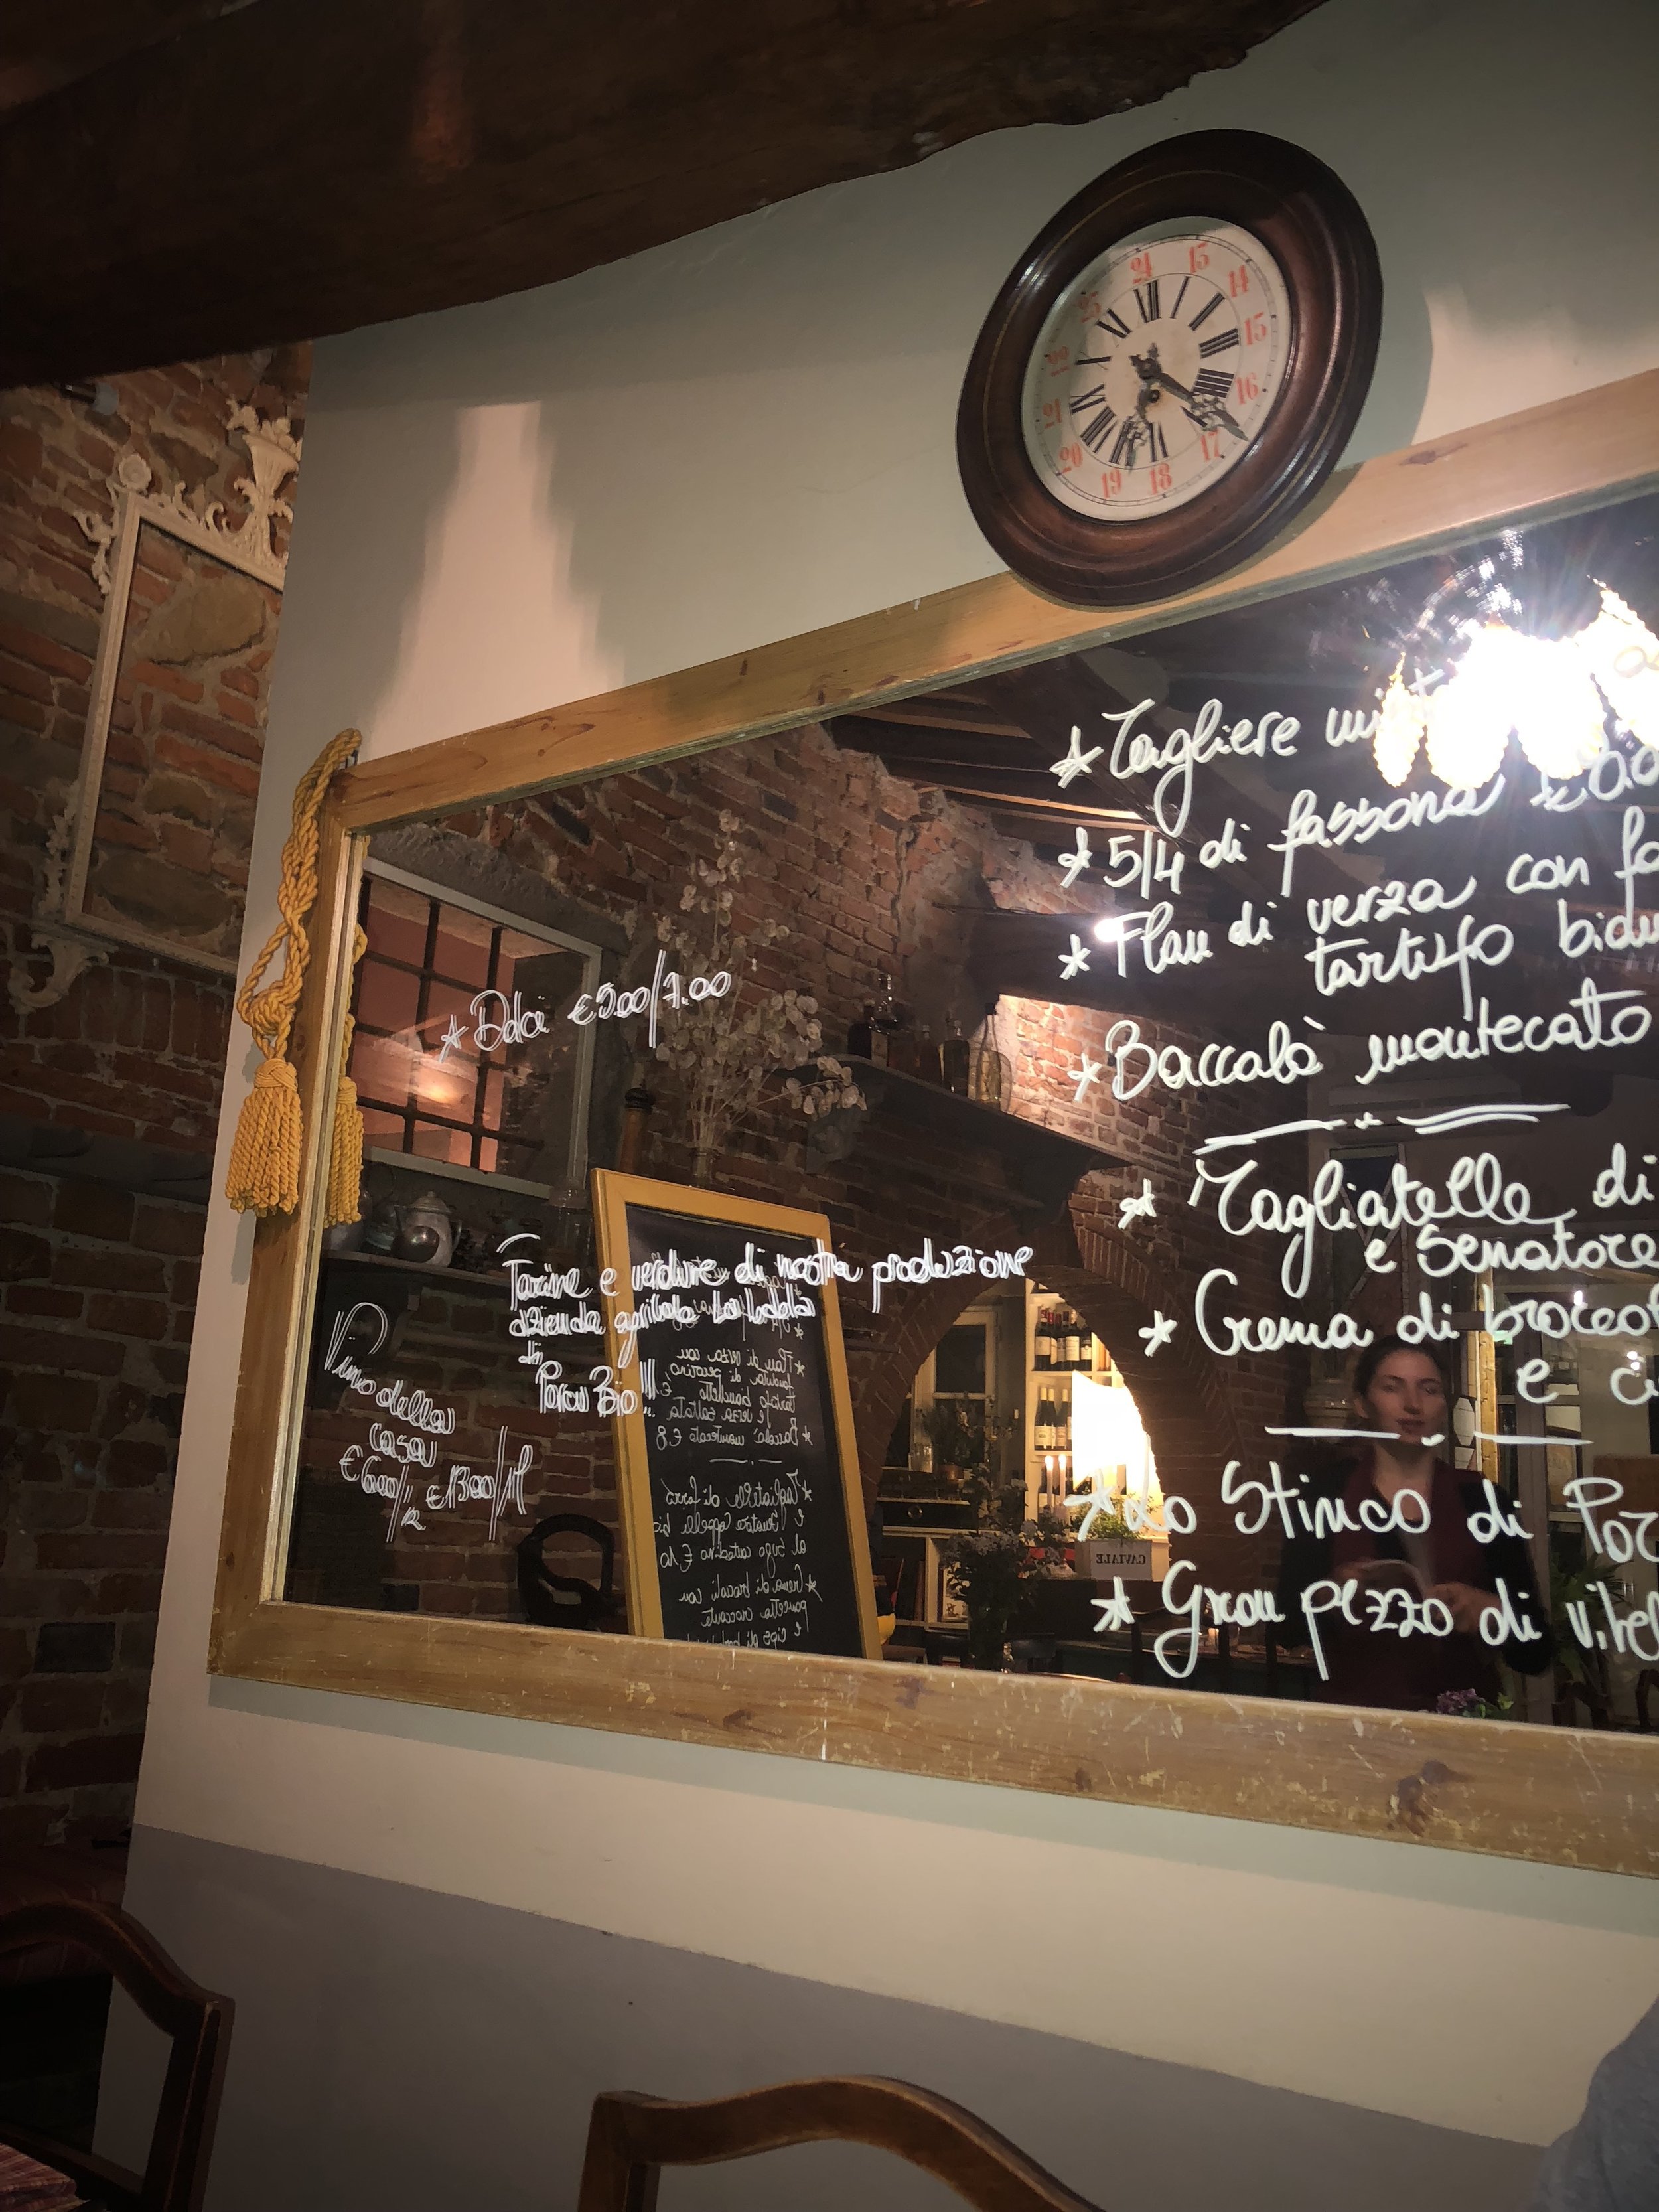 24
13
14
15
16
17
18
19
20
21
22
23
XII
I
II
III
IIII
V
VI
VII
VIII
IX
X
XI
* Tagliere
* 5/4 di fassona
* Flan di verza con
tartufo
* Baccalà montecato
* Tagliatelle di
e Senatore
* Crema di broccol
e
* Lo Stinco di Por
* Gran pezzo di vitel
* Dolce € 5.00/7.00
Farine e verdure di nostra produzione
azienda agricola
in
Parco Bio!!!
Vino della
casa
€ 6.00/½ € 13.00/1l
* Flan di verza con
fonduta di pecorino
tartufo
e verza saltata
* Baccalà montecato € 8
* Tagliatelle di farro
e Senatore Cappelli bio
al sugo contadino € 10
* Crema di broccoli con
pancetta croccante
e cips di
CAVIALE